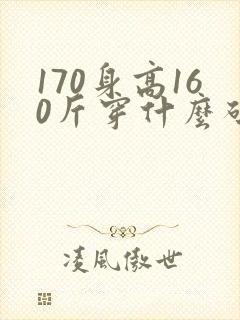 170身高16
0斤穿什麼
凌風傲世